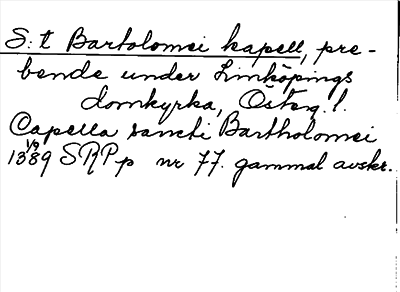 S:t Bartolomei kapell, pre-
bende under Linköpings
domkyrka, Österg. l.
Capella sancti Bartholomei
1/9 1389 SRP p nr 77. gammal avskr.